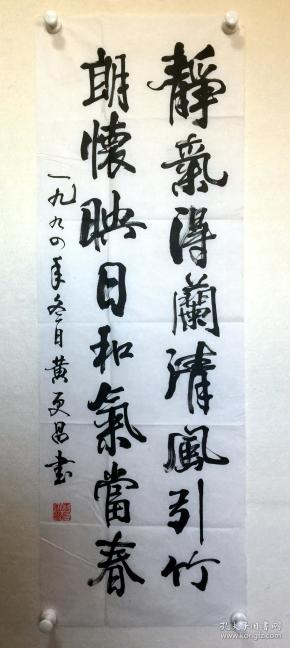 靜氣得蘭清風引竹
朗懷映日和氣當春
一九九四年冬月黄更昌書
孔夫子旧书网
www.kongfz.com